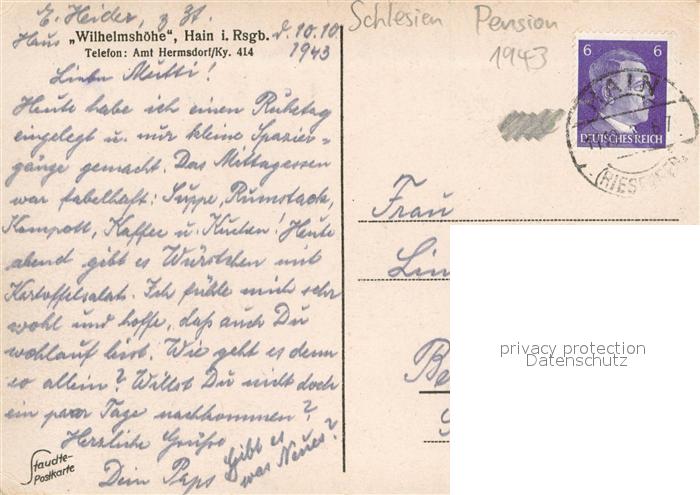 E. Heider, z. Zt.
Haus „Wilhelmshöhe", Hain i. Rsgb. d. 10.10.
Telefon: Amt Hermsdorf/Ky. 414
1943
Schlesien Pension
1943
Liebe Mutti!
Heute habe ich einen Ruhetag
eingelegt u. nur kleine Spazier-
gänge gemacht. Das Mittagessen
war fabelhaft: Suppe, Rumstack,
Kompott, Kaffee u. Kuchen! Heute
abend gibt es Würstchen mit
Kartoffelsalat. Ich fühle mich sehr
wohl und hoffe, daß auch Du
wohlauf bist. Wie geht es denn
so allein? Willst Du nicht doch
ein paar Tage nachkommen?
Herzliche Grüsse
Dein Paps
Gibt es
was Neues?
Staudte-
Postkarte
6 6
DEUTSCHES REICH
HAIN
Frau
Lin
privacy protection
Datenschutz